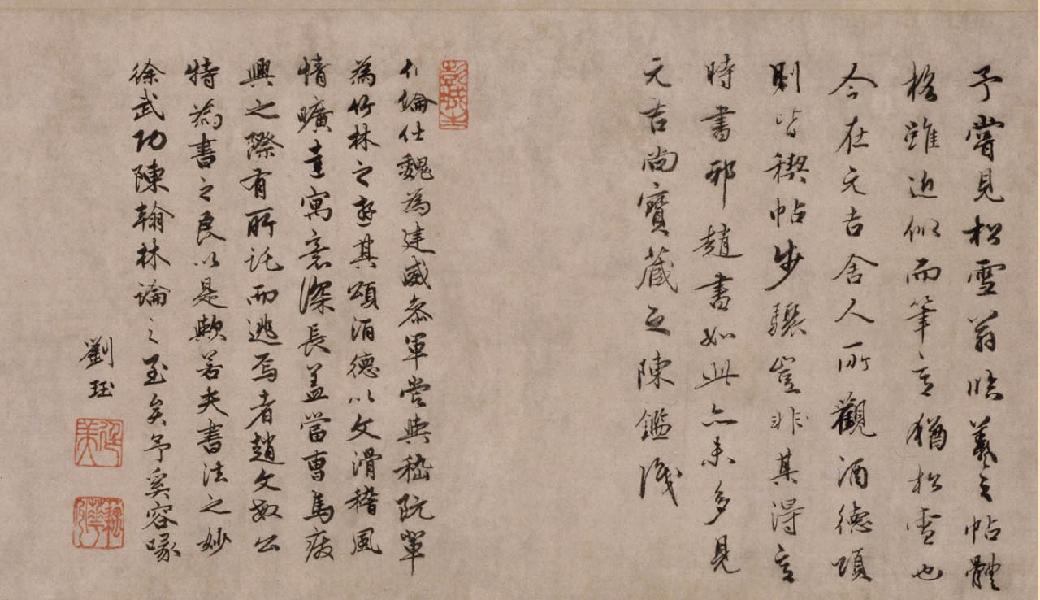 予嘗見松雪翁臨羲之帖體
格雖近似而筆意猶松雪也
今在元吉舍人所觀酒德頌
則皆稧帖步驟豈非其得意
時書邪趙書如此亦未多見
元吉尚寶藏之陳鑑識
伯倫仕魏為建威參軍嘗與嵇阮輩
為竹林之遊其頌酒德以文滑稽風
情曠達寓意深長蓋當曹馬廢
興之際有所託而逃焉者趙文敏公
特為書之良以是歟若夫書法之妙
徐武功陳翰林論之至矣予奚容喙
劉珏